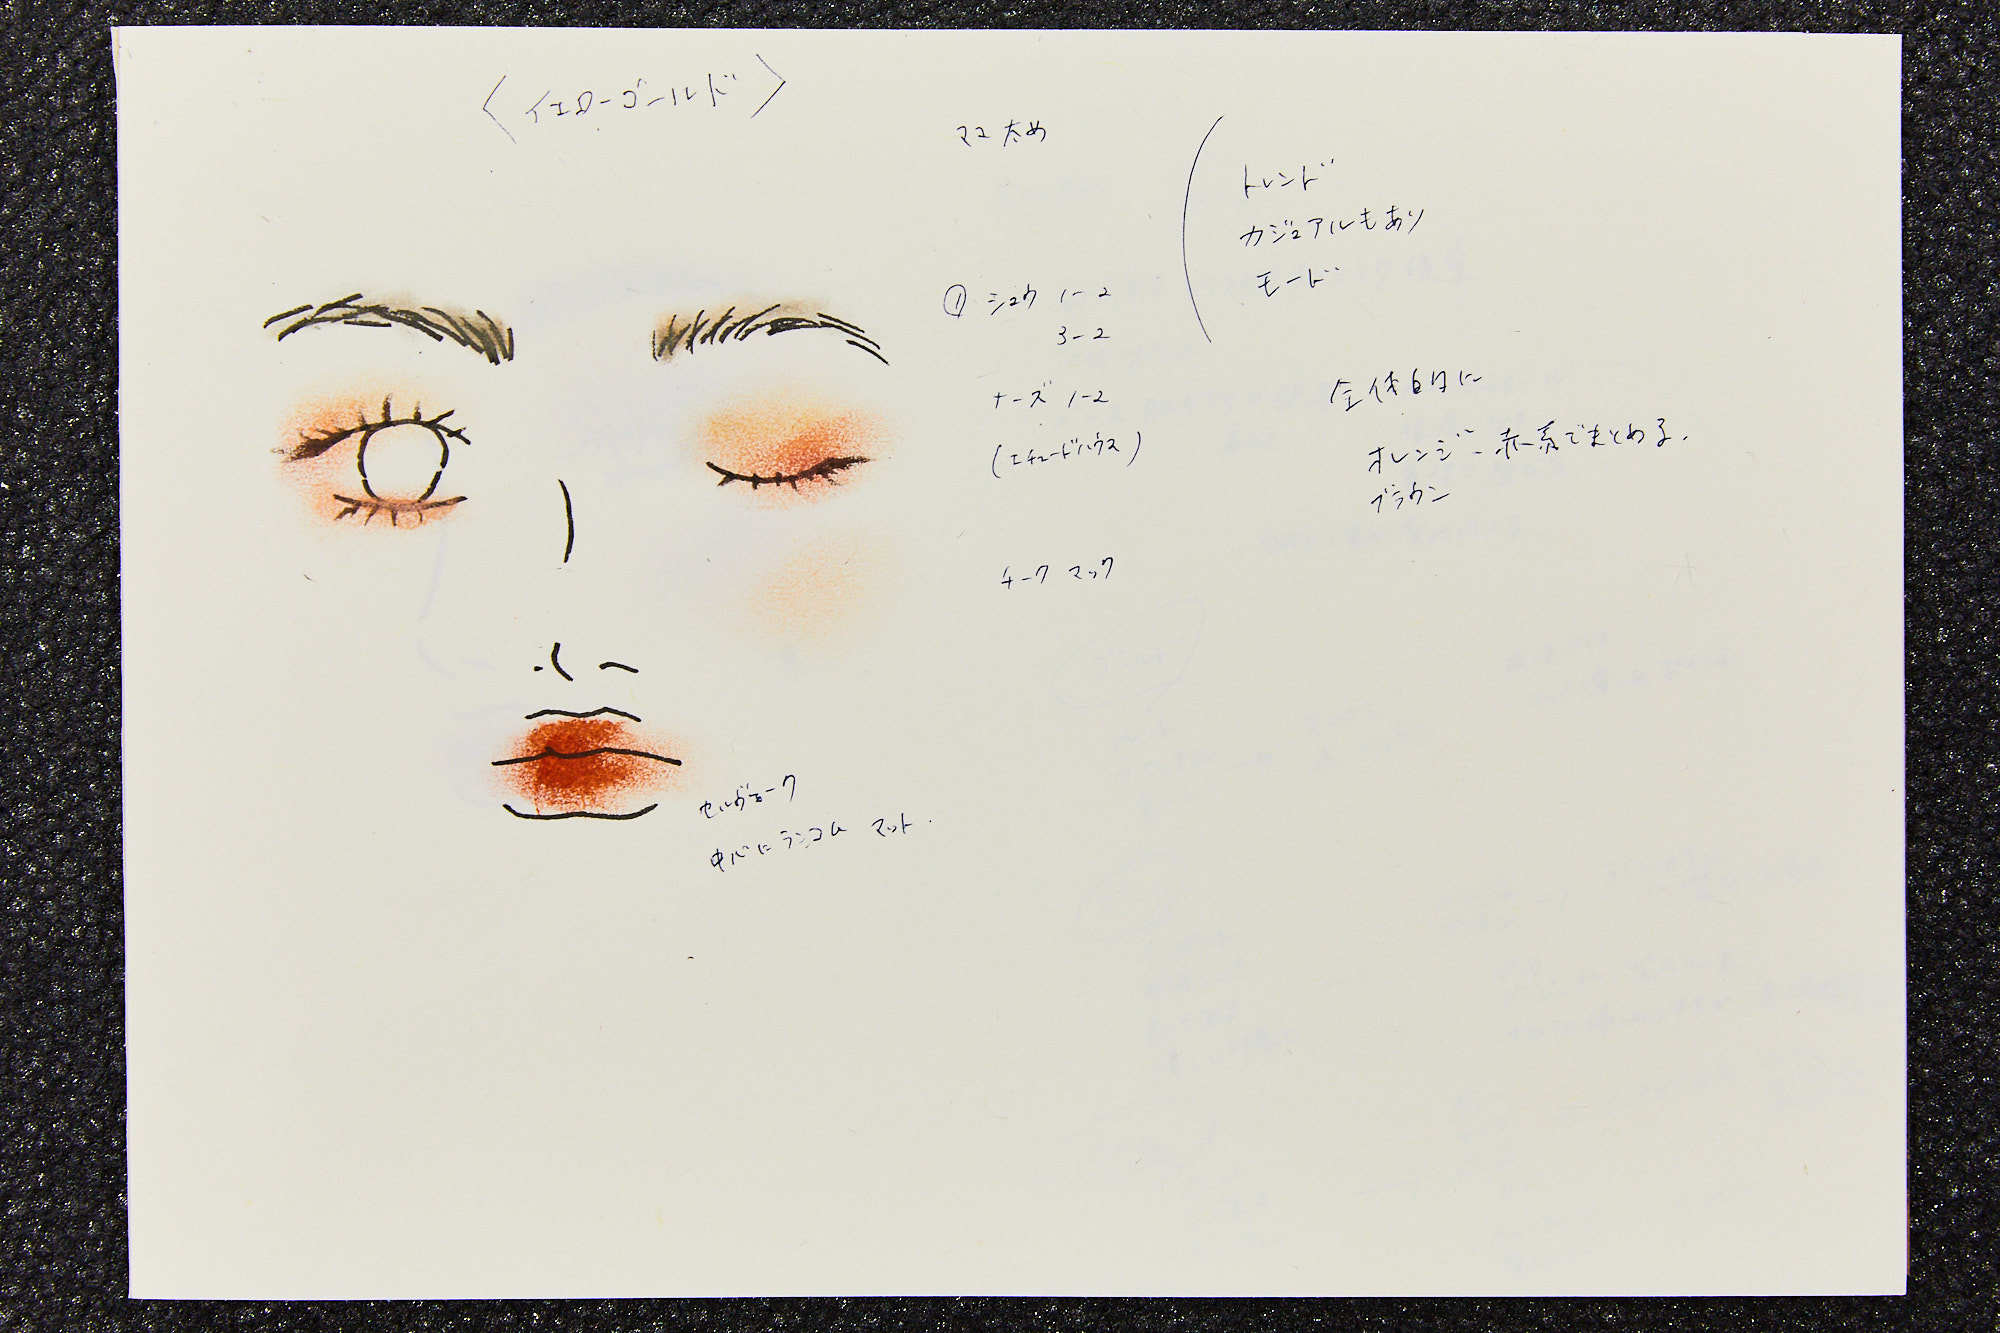 〈イエローゴールド〉
マユ太め
トレンド
カジュアルもあり
モード
① シュウ 1-2
3-2
ナーズ 1-2
(エチュードハウス)
全体的に
オレンジ、赤系でまとめる.
ブラウン
チーク マック
セルヴォーク
中心にランコム マット.